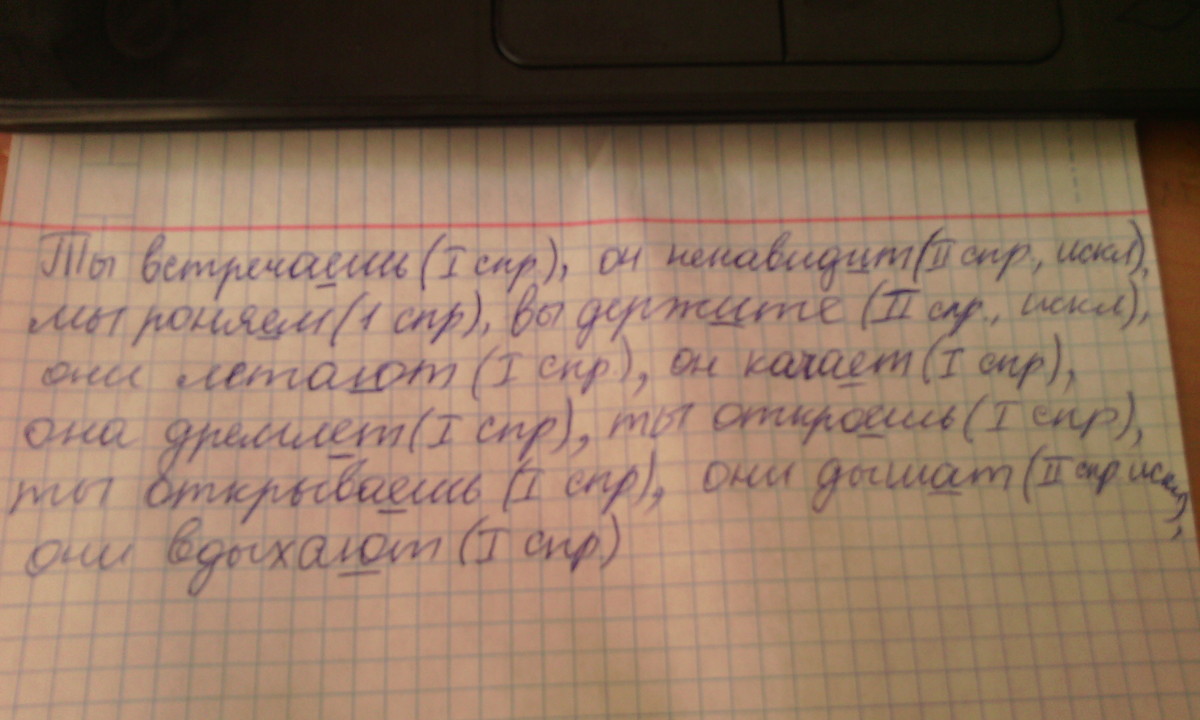 Ты встречаешь (I спр.), он ненавидит (II спр., искл),
мы роняем (1 спр), вы держите (II спр., искл),
они летают (I спр.), он качает (I спр),
она дремлет (I спр), ты откроешь (I спр),
ты открываешь (I спр), они дышат (II спр искл),
они вдыхают (I спр.)